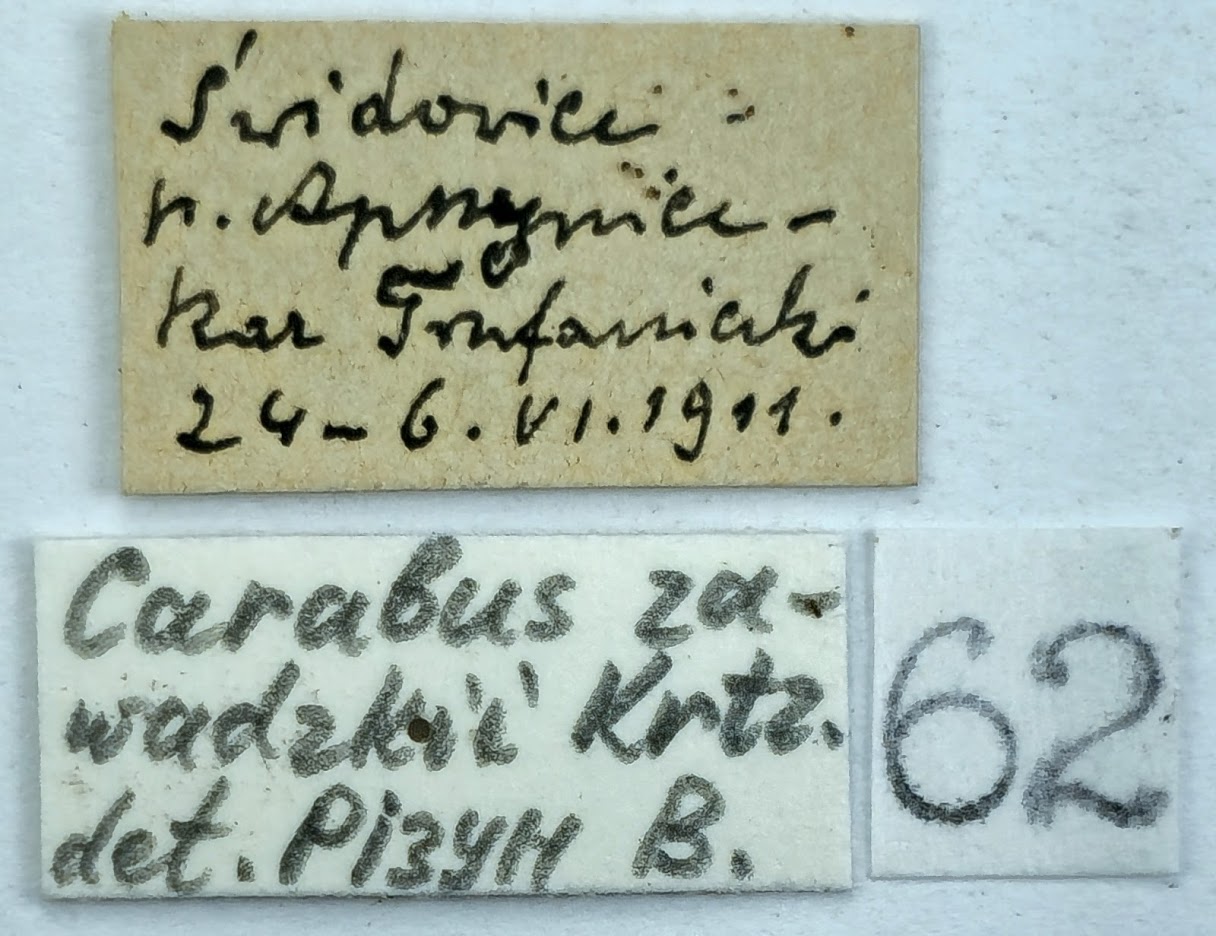 Świdovice -
p. Apszynice -
Kar Trufaniecki
24-6. VI. 1911.
Carabus za-
wadzkii Krtz.
det. Різун В.
62